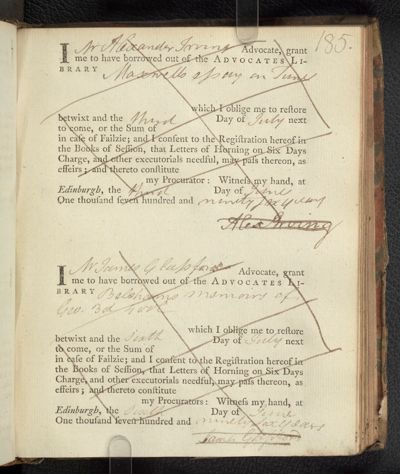 185.
I Mr Alexander Irving Advocate, grant
me to have borrowed out of the ADVOCATES LI-
BRARY Maxwells essay on Tune
which I oblige me to restore
betwixt and the third Day of July next
to come, or the Sum of
in case of Failzie; and I consent to the Registration hereof in
the Books of Session, that Letters of Horning on Six Days
Charge, and other executorials needful, may pass thereon, as
effeirs; and thereto constitute
my Procurator: Witness my hand, at
Edinburgh, the third Day of June
One thousand seven hundred and ninety six years
Alex Irving
I Mr James Glassford Advocate, grant
me to have borrowed out of the ADVOCATES LI-
BRARY Belshams memoirs of
Geo. 3d
which I oblige me to restore
betwixt and the Sixth Day of July next
to come, or the Sum of
in case of Failzie; and I consent to the Registration hereof in
the Books of Session, that Letters of Horning on Six Days
Charge, and other executorials needful, may pass thereon, as
effeirs; and thereto constitute
my Procurators: Witness my hand, at
Edinburgh, the Sixth Day of June
One thousand seven hundred and ninety six years
James Glassford